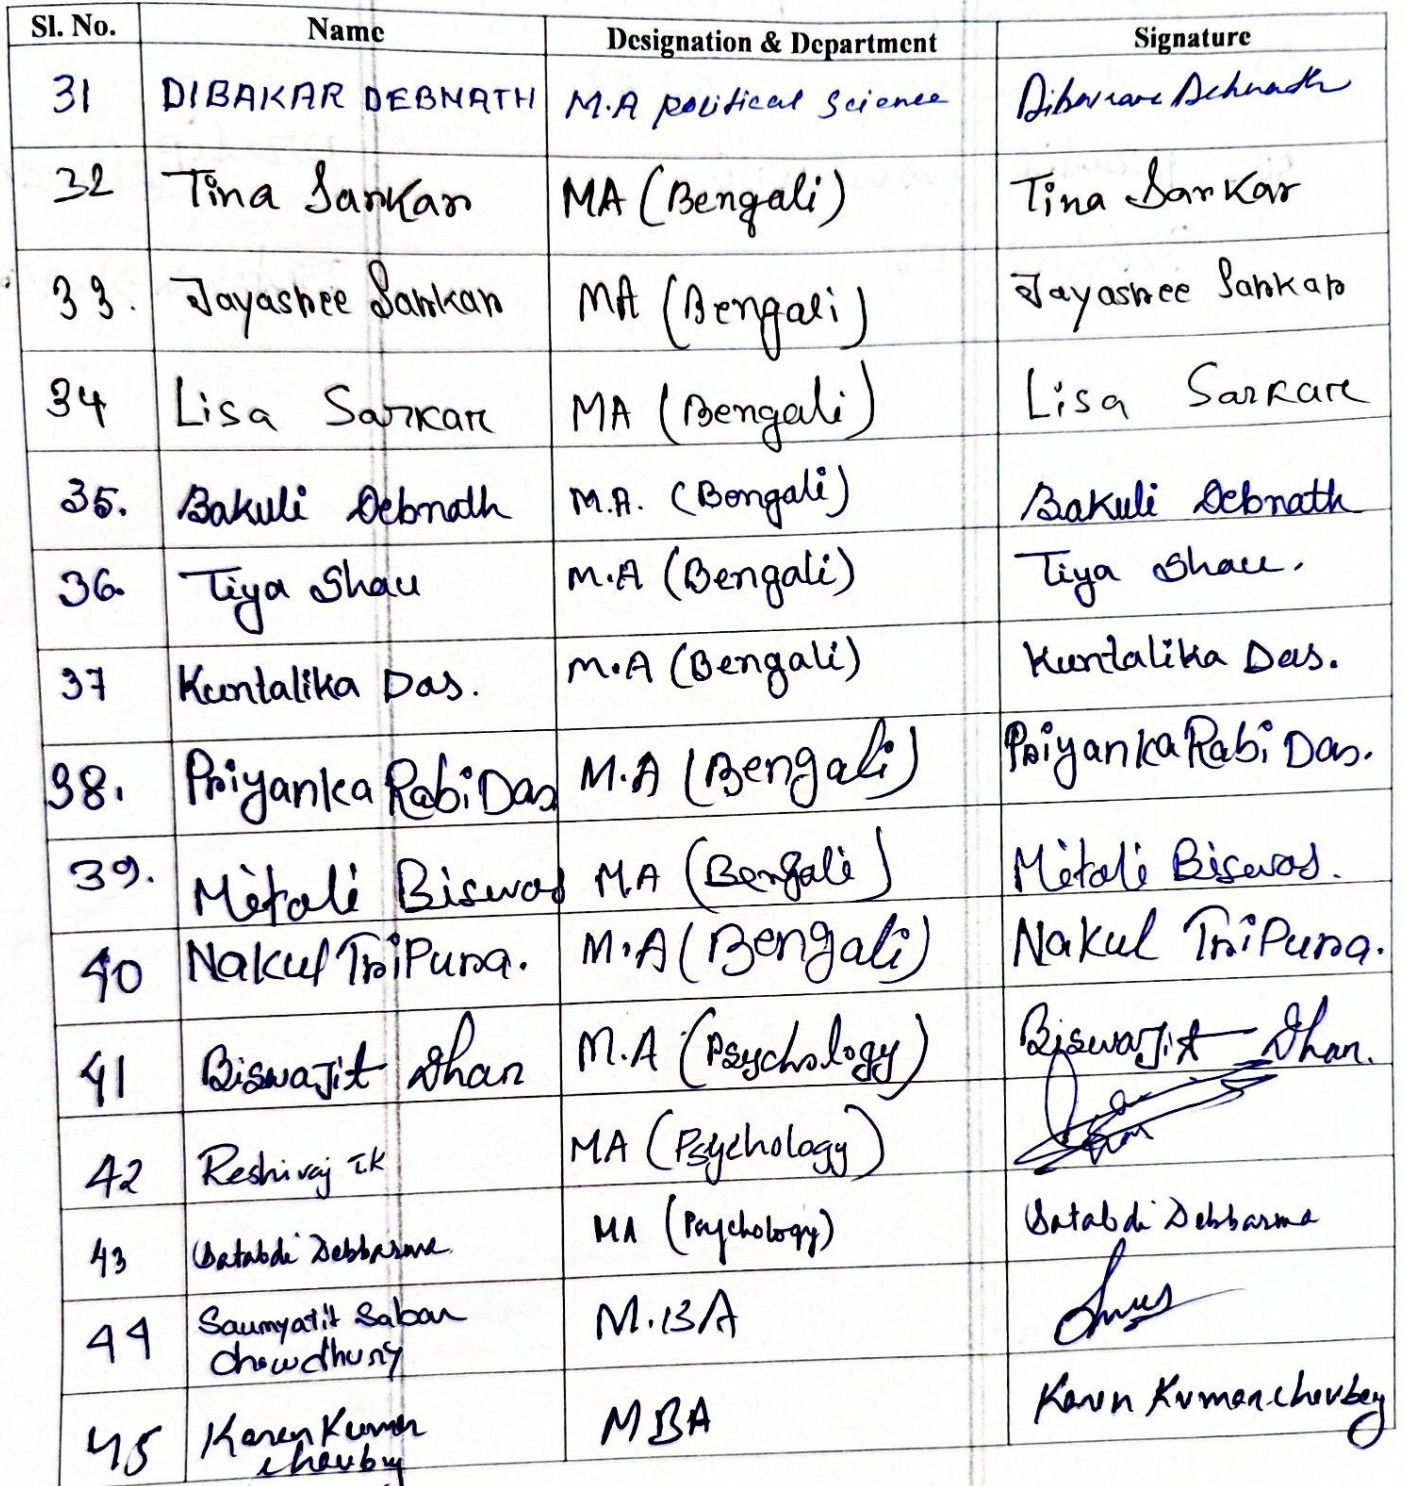 Sl. No. Name Designation & Department Signature
31 DIBAKAR DEBNATH M.A political Science Debnath
32 Tina Sarkar MA (Bengali) Tina Sarkar
33. Jayashree Sarkar MA (Bengali) Jayashree Sarkar
34 Lisa Sarkar MA (Bengali) Lisa Sarkar
35. Bakuli Debnath M.A. (Bengali) Bakuli Debnath
36. Tiya Shau M.A (Bengali) Tiya Shau.
37 Kuntalika Das. M.A (Bengali) Kuntalika Das.
38. Priyanka RabiDas M.A (Bengali) Priyanka Rabi Das.
39. Mitali Biswas M.A (Bengali) Mitali Biswas.
40 Nakul TriPura. M.A (Bengali) Nakul TriPura.
41 BiswaJit Dhar M.A (Psychology) BiswaJit Dhar.
42 Reshiraj MA (Psychology)
43 Satabdi Debbarma MA (Psychology) Satabdi Debbarma
44 Saumyajit Sabar M.BA
Chowdhury
45 Karan Kumar MBA Karan Kumar choubey
choubey